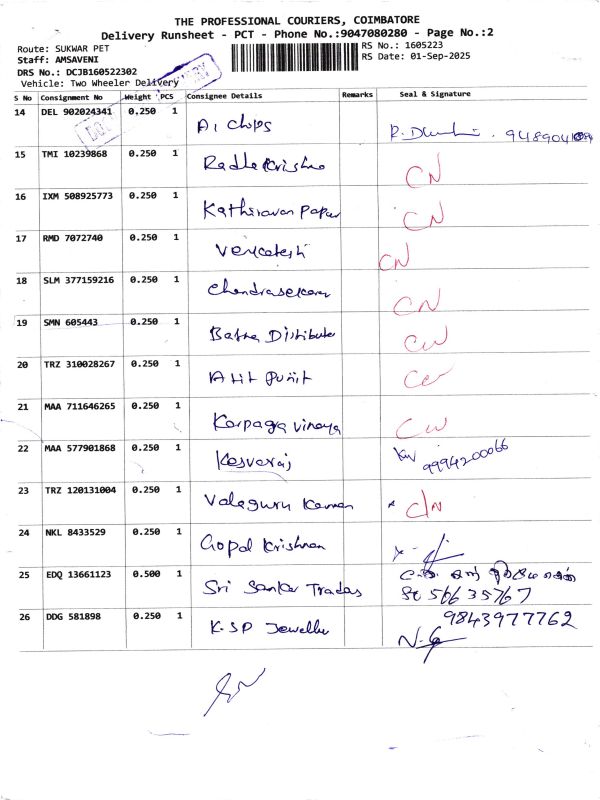 THE PROFESSIONAL COURIERS, COIMBATORE
Delivery Runsheet - PCT - Phone No.:9047080280 - Page No.:2
Route: SUKWAR PET
RS No.: 1605223
Staff: AMSAVENI
RS Date: 01-Sep-2025
DRS No.: DCJB160522302
Vehicle: Two Wheeler Delivery
S No Consignment No Weight PCS Consignee Details Remarks Seal & Signature
14 DEL 902024341 0.250 1 A1 Chips
15 TMI 10239868 0.250 1 Radha Krishna CN
16 IXM 508925773 0.250 1 Kathiravan Paper CN
17 RMD 7072740 0.250 1 Venkatesh CN
18 SLM 377159216 0.250 1 Chandrasekaran CN
19 SMN 605443 0.250 1 Distributer
20 TRZ 310028267 0.250 1
21 MAA 711646265 0.250 1 Karpaga Vinaya
22 MAA 577901868 0.250 1 Kesvaraj 9994200066
23 TRZ 120131004 0.250 1 C/N
24 NKL 8433529 0.250 1 Gopal Krishnan
25 EDQ 13661123 0.500 1 Sri Sankar Trades
26 DDG 581898 0.250 1 K.SP Jeweller 9843977762